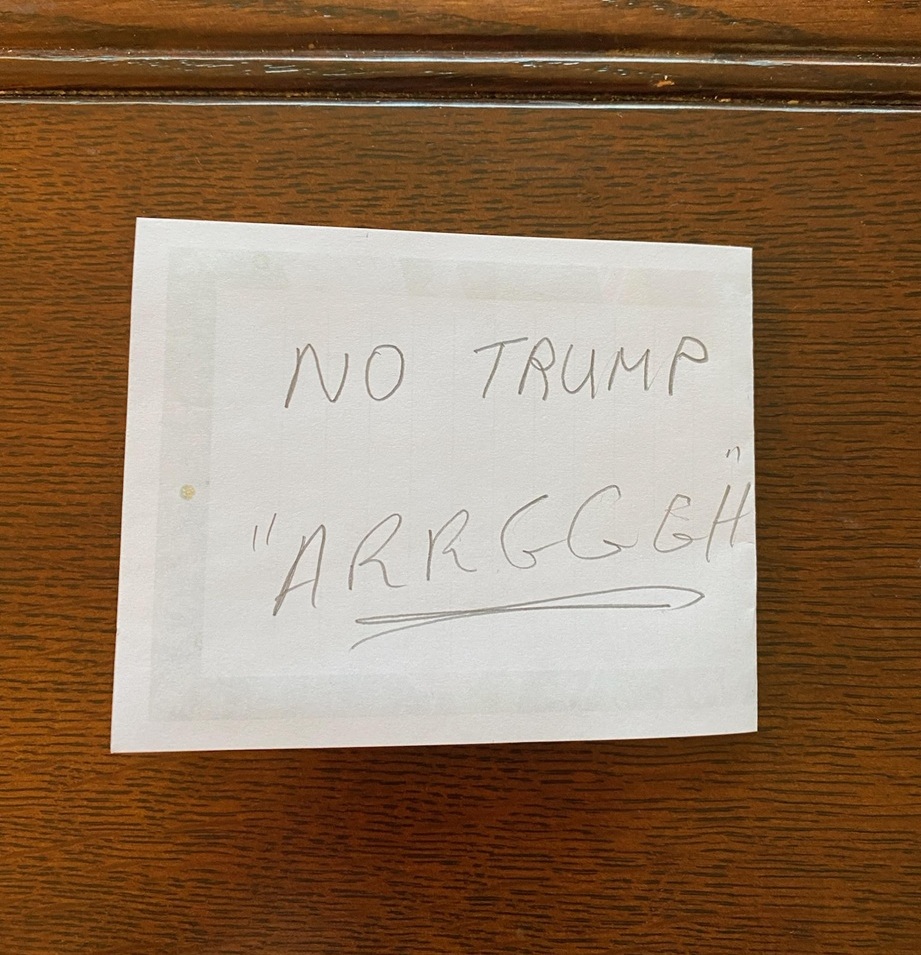 NO TRUMP
"ARRGGGH"